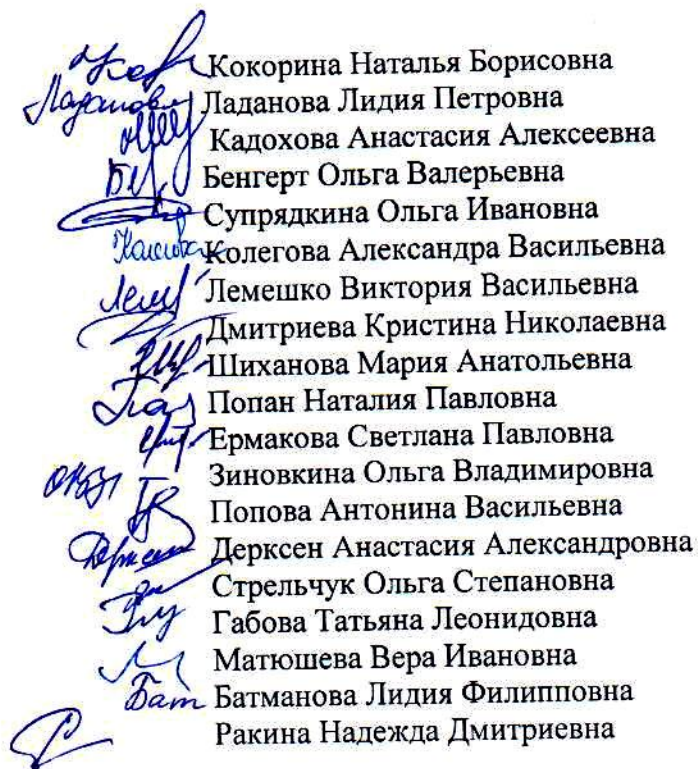 Кокорина Наталья Борисовна
Ладанова Лидия Петровна
Кадохова Анастасия Алексеевна
Бенгерт Ольга Валерьевна
Супрядкина Ольга Ивановна
Колегова Александра Васильевна
Лемешко Виктория Васильевна
Дмитриева Кристина Николаевна
Шиханова Мария Анатольевна
Попан Наталия Павловна
Ермакова Светлана Павловна
Зиновкина Ольга Владимировна
Попова Антонина Васильевна
Дерксен Анастасия Александровна
Стрельчук Ольга Степановна
Габова Татьяна Леонидовна
Матюшева Вера Ивановна
Бат Батманова Лидия Филипповна
Ракина Надежда Дмитриевна